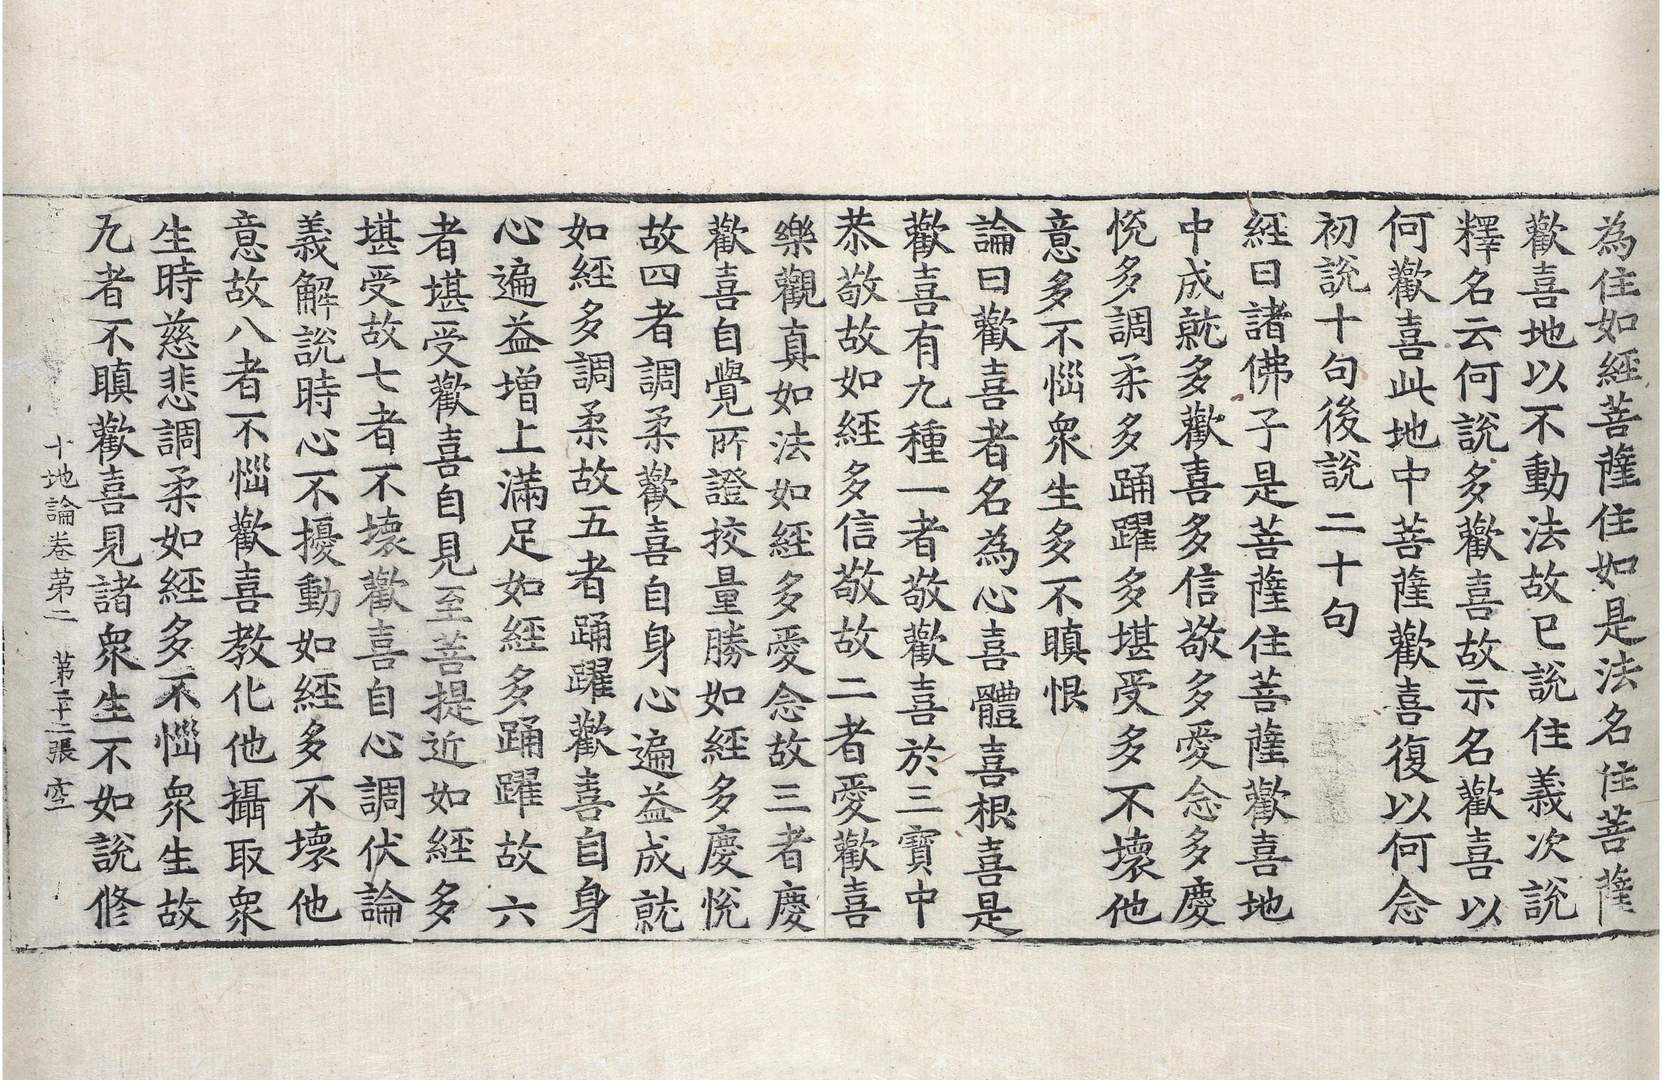 為住如經菩薩住如是法名住菩薩
歡喜地以不動法故已說住義次說
釋名云何說多歡喜故示名歡喜以
何歡喜此地中菩薩歡喜復以何念
初說十句後說二十句
經曰諸佛子是菩薩住菩薩歡喜地
中成就多歡喜多信敬多愛念多慶
悅多調柔多踊躍多堪受多不壞他
意多不惱衆生多不瞋恨
論曰歡喜者名為心喜體喜根喜是
歡喜有九種一者敬歡喜於三寶中
恭敬故如經多信敬故二者愛歡喜
樂觀真如法如經多愛念故三者慶
歡喜自覺所證挍量勝如經多慶悅
故四者調柔歡喜自身心遍益成就
如經多調柔故五者踊躍歡喜自身
心遍益增上滿足如經多踊躍故六
者堪受歡喜自見至菩提近如經多
堪受故七者不壞歡喜自心調伏論
義解說時心不擾動如經多不壞他
意故八者不惱歡喜教化他攝取衆
生時慈悲調柔如經多不惱衆生故
九者不瞋歡喜見諸衆生不如說修
十地論卷第二 第二十二張 空